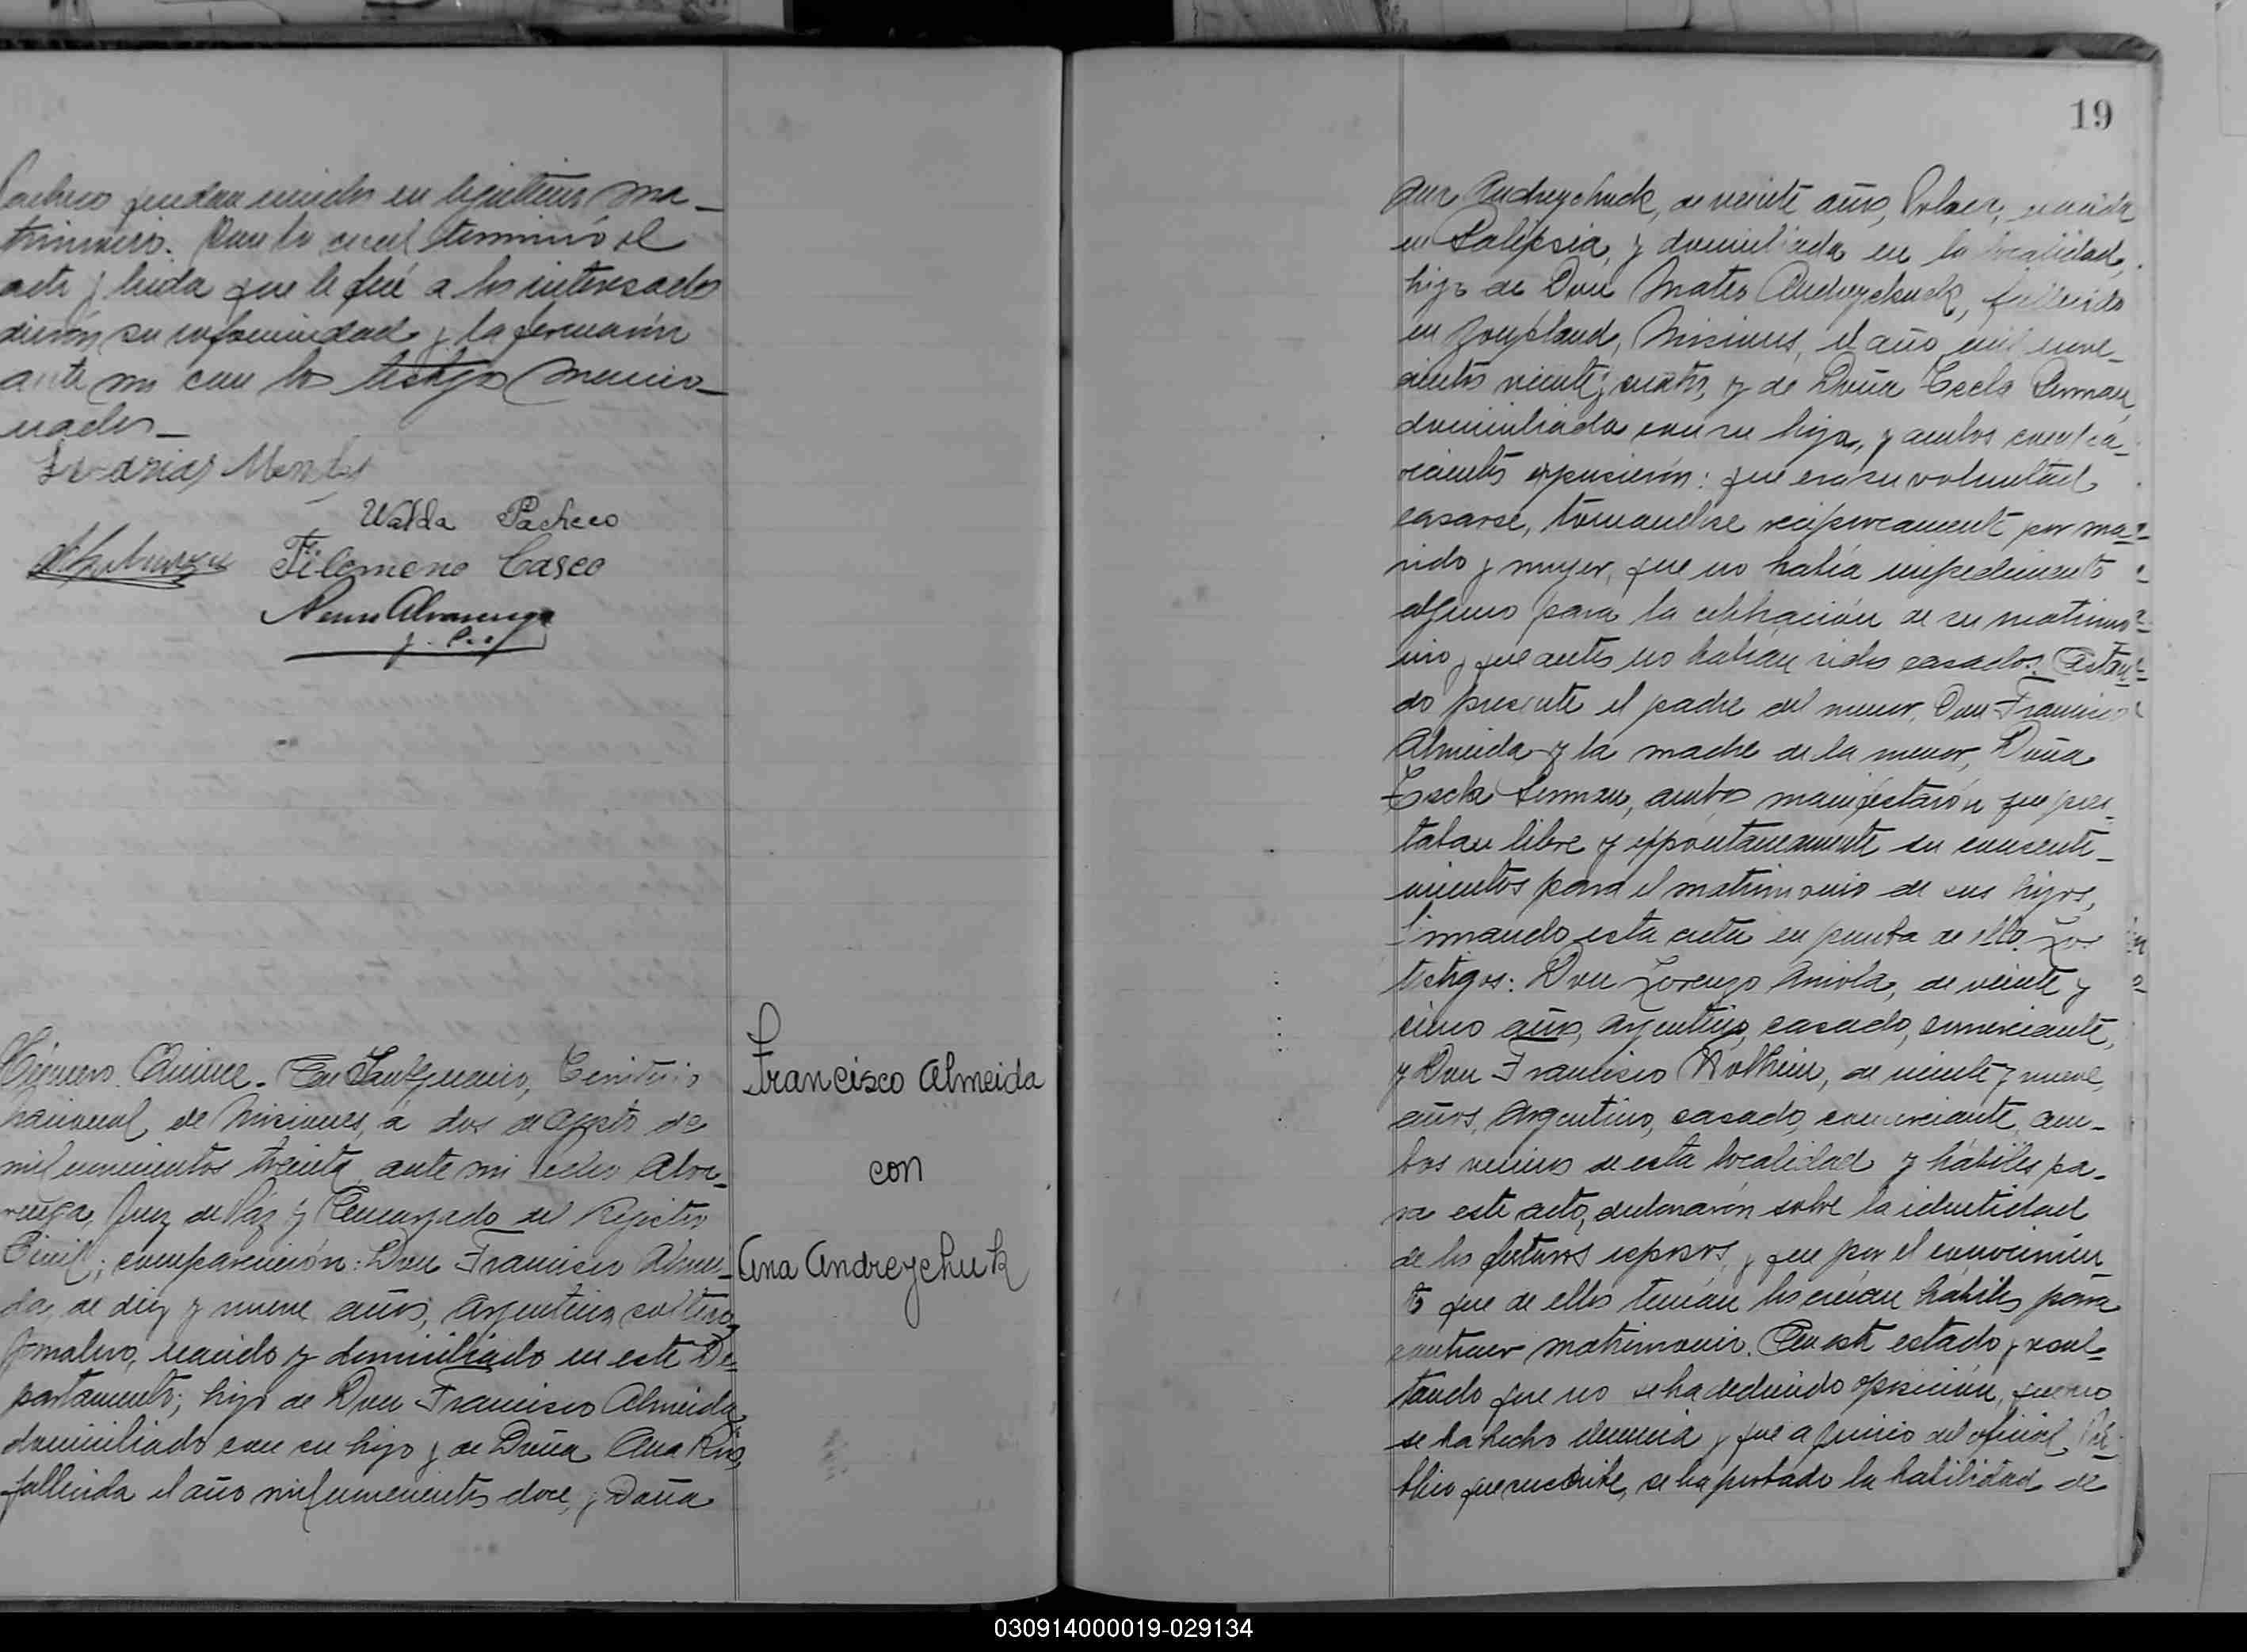 Pacheco quedan unidos en legitimo ma-
trimonio. Con lo cual terminó el
acta y leida que le fué a los interesados
dierón su conformidad y la firmarón
ante mi con los testigos mencio-
nados_
Mendes
Walda Pacheco
Filomeno Casco
Alvarenga
J. Paz
Número Quince. En San Ignacio, Territorio
Nacional de Misiones, á dos de Agosto de
mil novecientos treinta, ante mi Alva-
renga, Juez de Paz y Encargado del Registro
Civil; comparecierón: Don Francisco Almei-
da, de diez y nueve años, Argentino, soltero,
jornalero, nacido y domiciliado en este De-
partamento; hijo de Don Francisco Almeida,
domiciliado con su hijo y de Doña Ana Rios,
fallecida el año mil novecientos doce, y Doña
Francisco Almeida
con
Ana Andreychuk
19
Ana Andreychuck, de veinte años, Polaca, nacida
en Galipsia, y domiciliada en la localidad,
hija de Don Mateo Andreychuck, fallecido
en Misiones, el año mil nove-
cientos veinte y cuatro, y de Doña Tecla Serman,
domiciliada con su hija, y ambos compa-
recientes expusierón: que era su voluntad
casarse, tomandose reciprocamente por ma-
rido y mujer, que no había impedimento
alguno para la celebración de su matrimo-
nio y que antes no habian sido casados. Estan-
do presente el padre del menor, Don Francisco
Almeida y la madre de la menor, Doña
Tecla Serman, ambos manifestarón que pres-
taban libre y expontaneamente su consenti-
mientos para el matrimonio de sus hijos,
firmando esta acta en prueba de ello. Los
testigos: Don Lorenzo de veinte y
cinco años, Argentino, casado, comerciante,
y Don Francisco de veinte y nueve
años, Argentino, casado, comerciante, am-
bos vecinos de esta localidad y hábiles pa-
ra este acto, declararón sobre la identidad
de los futuros esposos, y que por el conocimien-
to que de ellos tenían los creían hábiles para
contraer matrimonio. En este estado y resul-
tando que no se ha deducido oposición, que no
se ha hecho denuncia y que a juicio del oficial Pú-
blico que suscribe, se ha probado la habilidad de
030914000019-029134